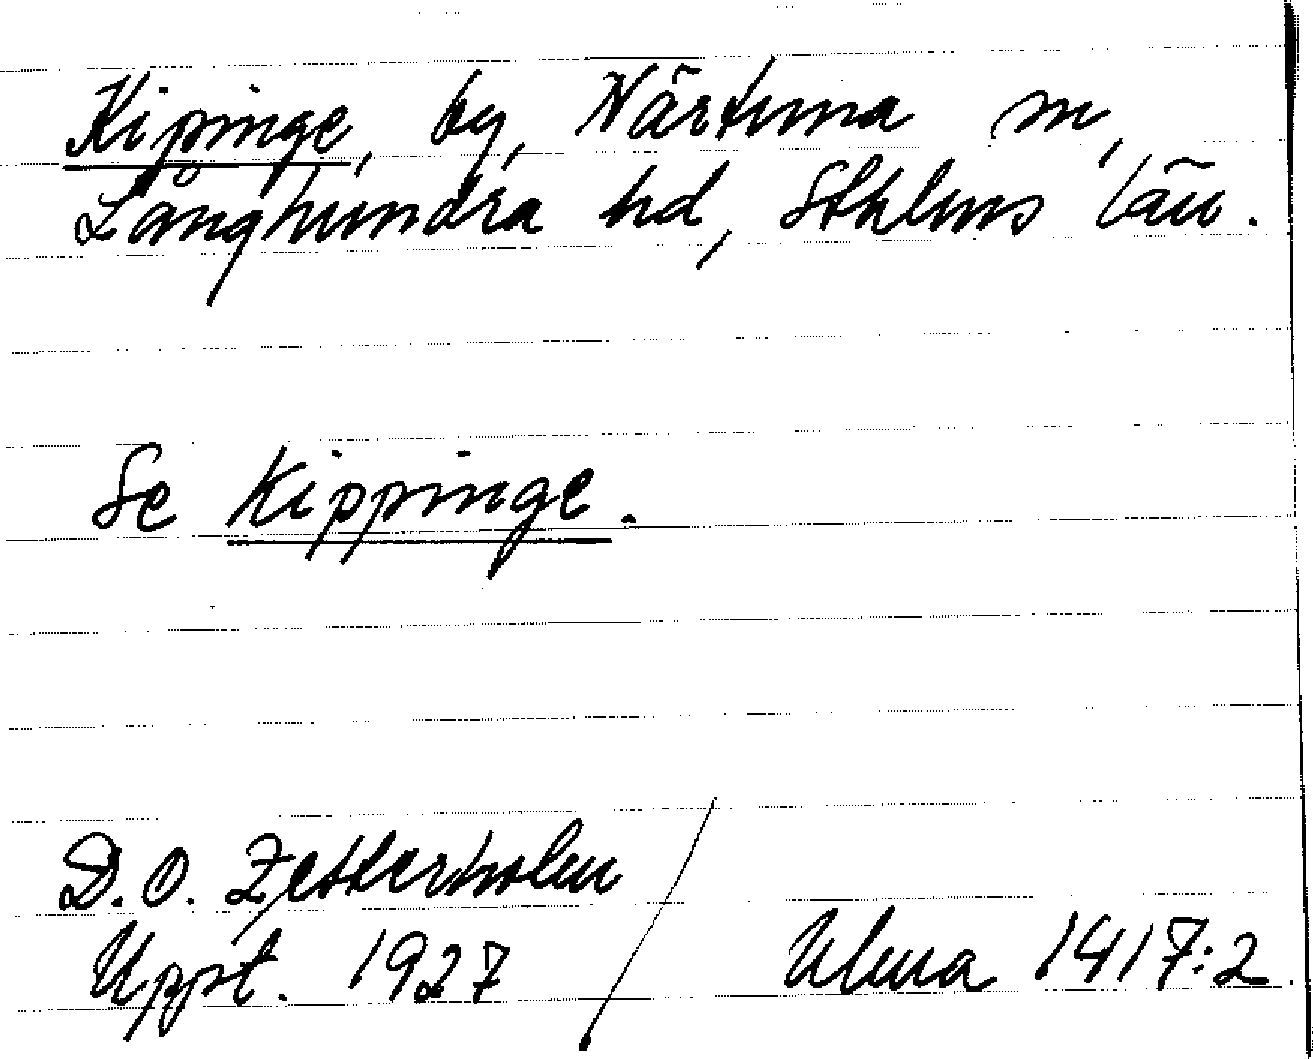 Kipinge, by, Närtuna sn,
Långhundra hd, Sthlms län.
Se Kippinge.
D. O. Zetterholm
Uppt. 1927 / Ulma 1417:2.